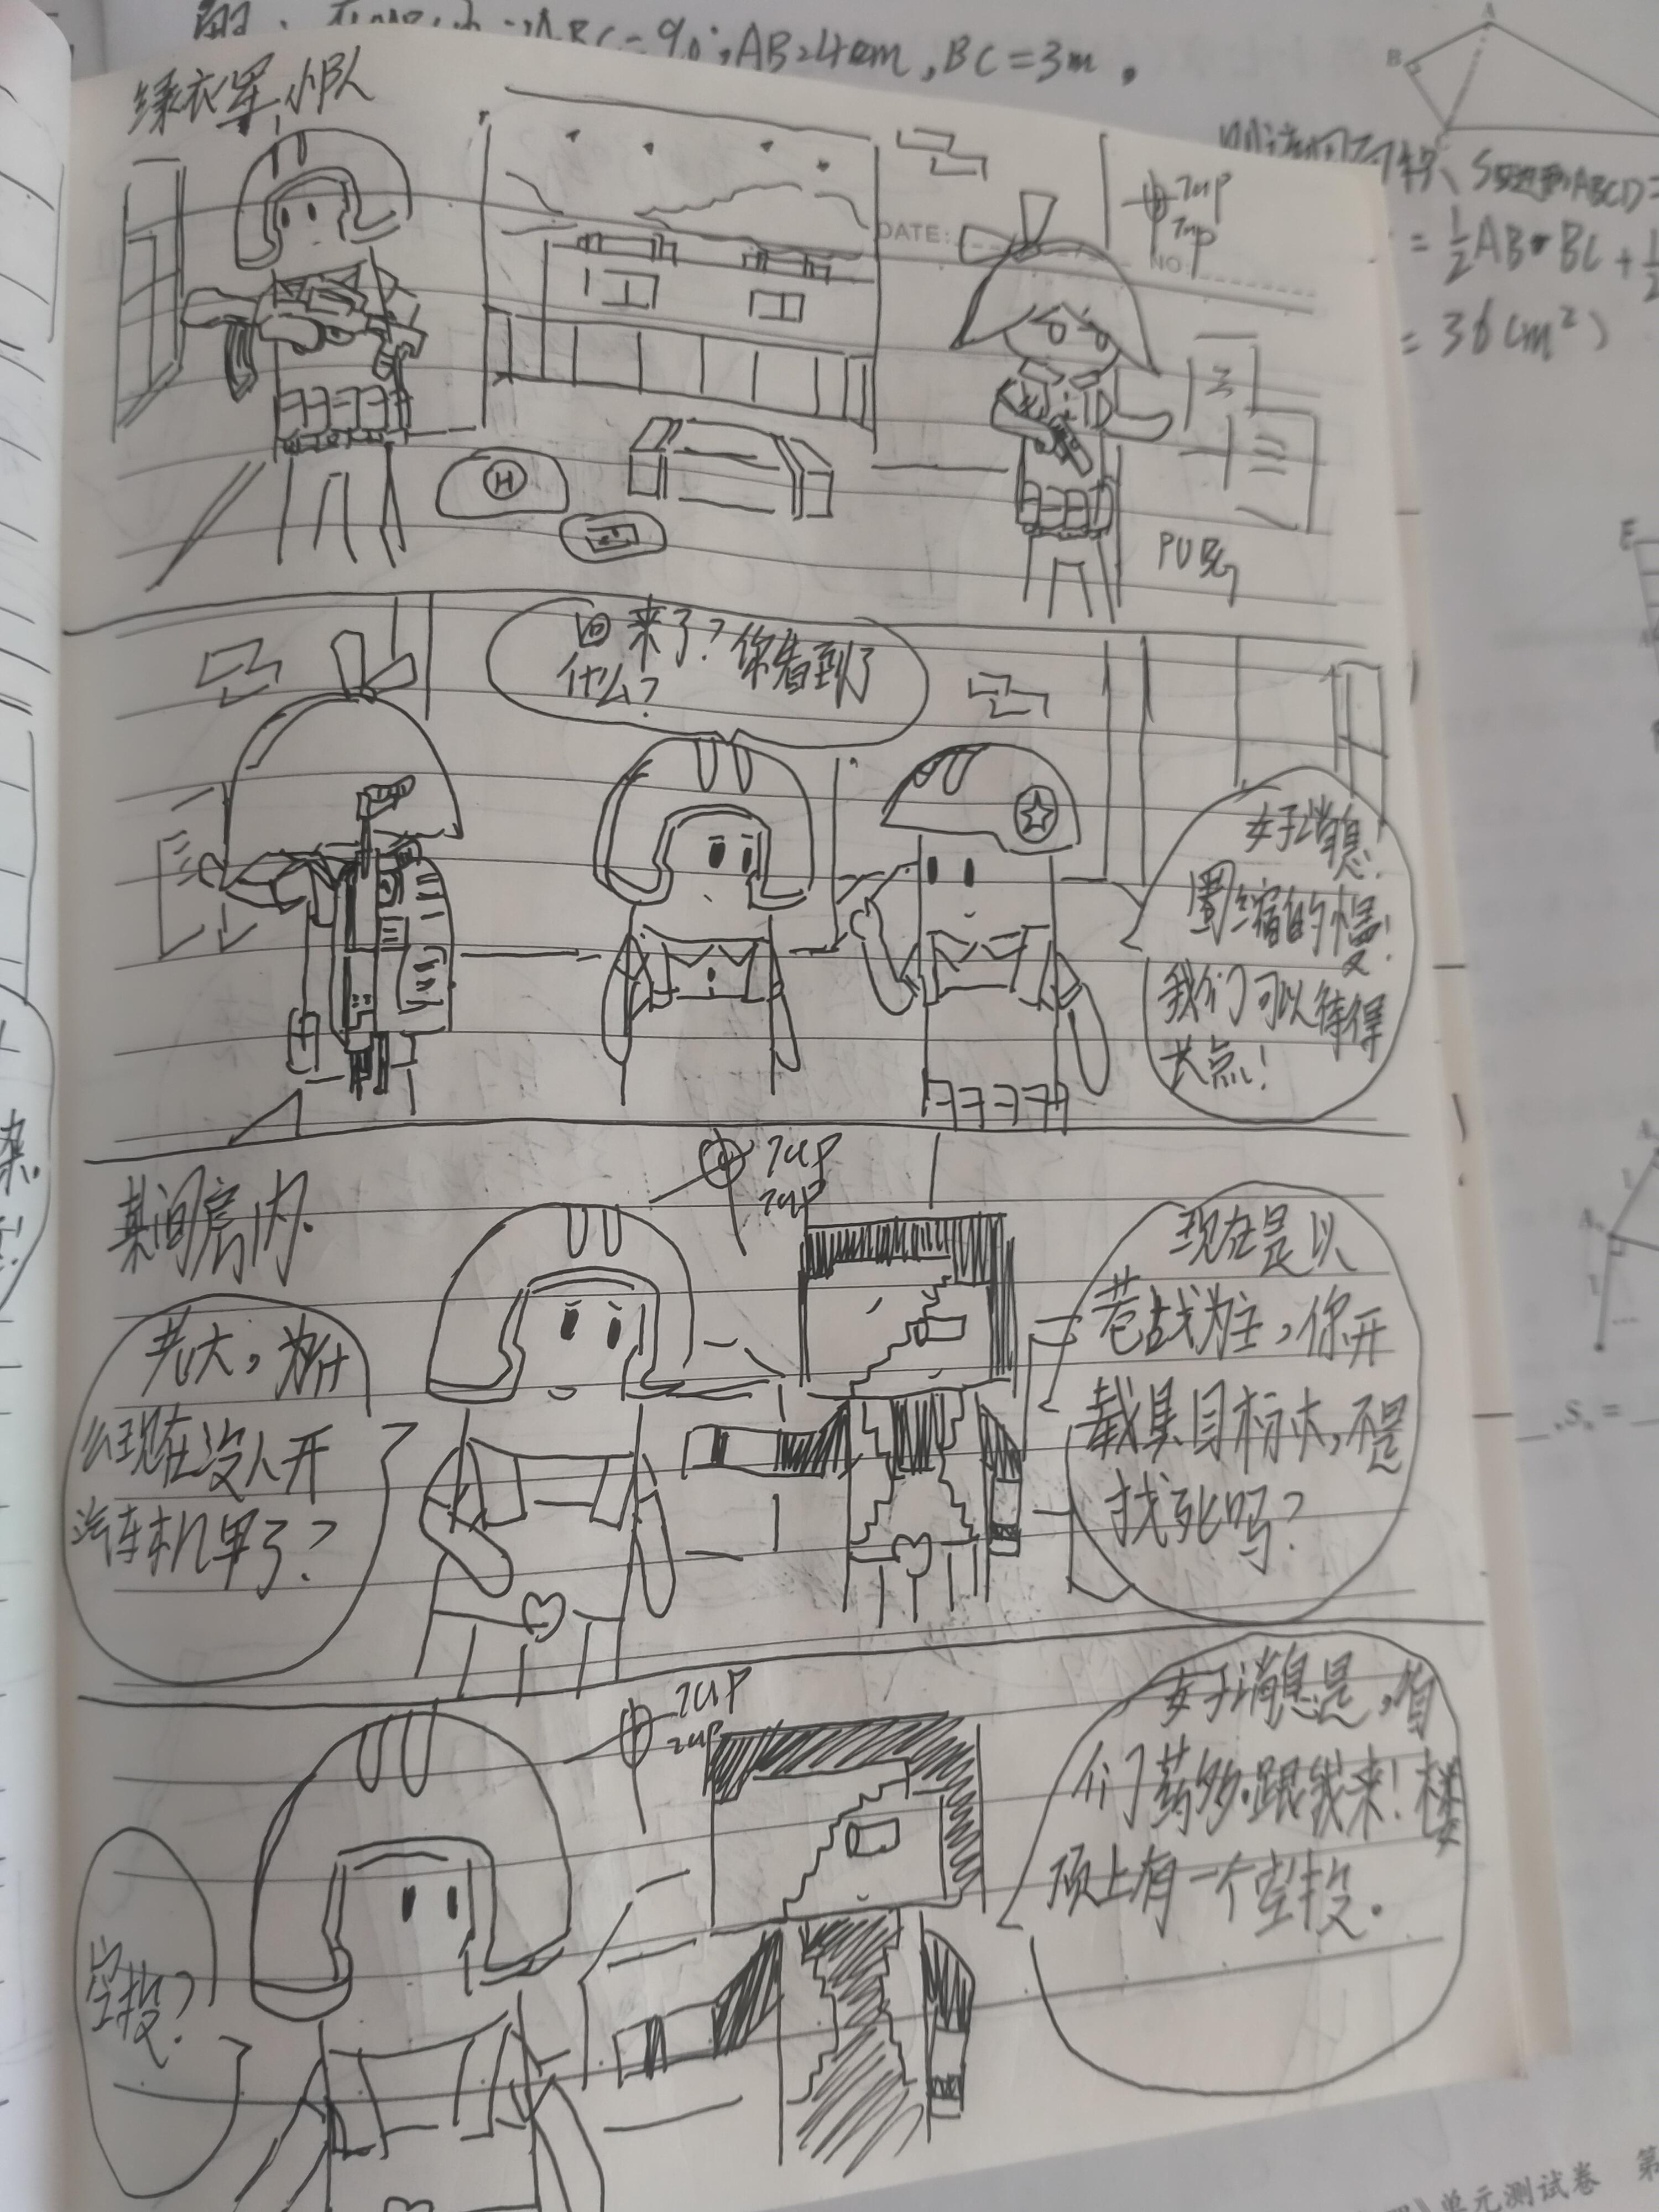 ∠ABC=90°,AB=4cm,BC=3m,
绿衣军小队
A
B
S四边形ABCD=
=½AB·BC+½
=36(cm²)
DATE:
NO:
7up
7up
H
PUBG
回来了?你看到了
什么?
好消息!
圈缩的慢!
我们可以待得
长点!
某间房内.
7up
7up
老大,为什
么现在没人开
汽车机车了?
现在是以
巷战为主,你开
载具目标大,不是
找死吗?
7up
7up
好消息是,咱
们药多.跟我来!楼
顶上有一个空投.
空投?
E
A
,Sₙ=
单元测试卷 第